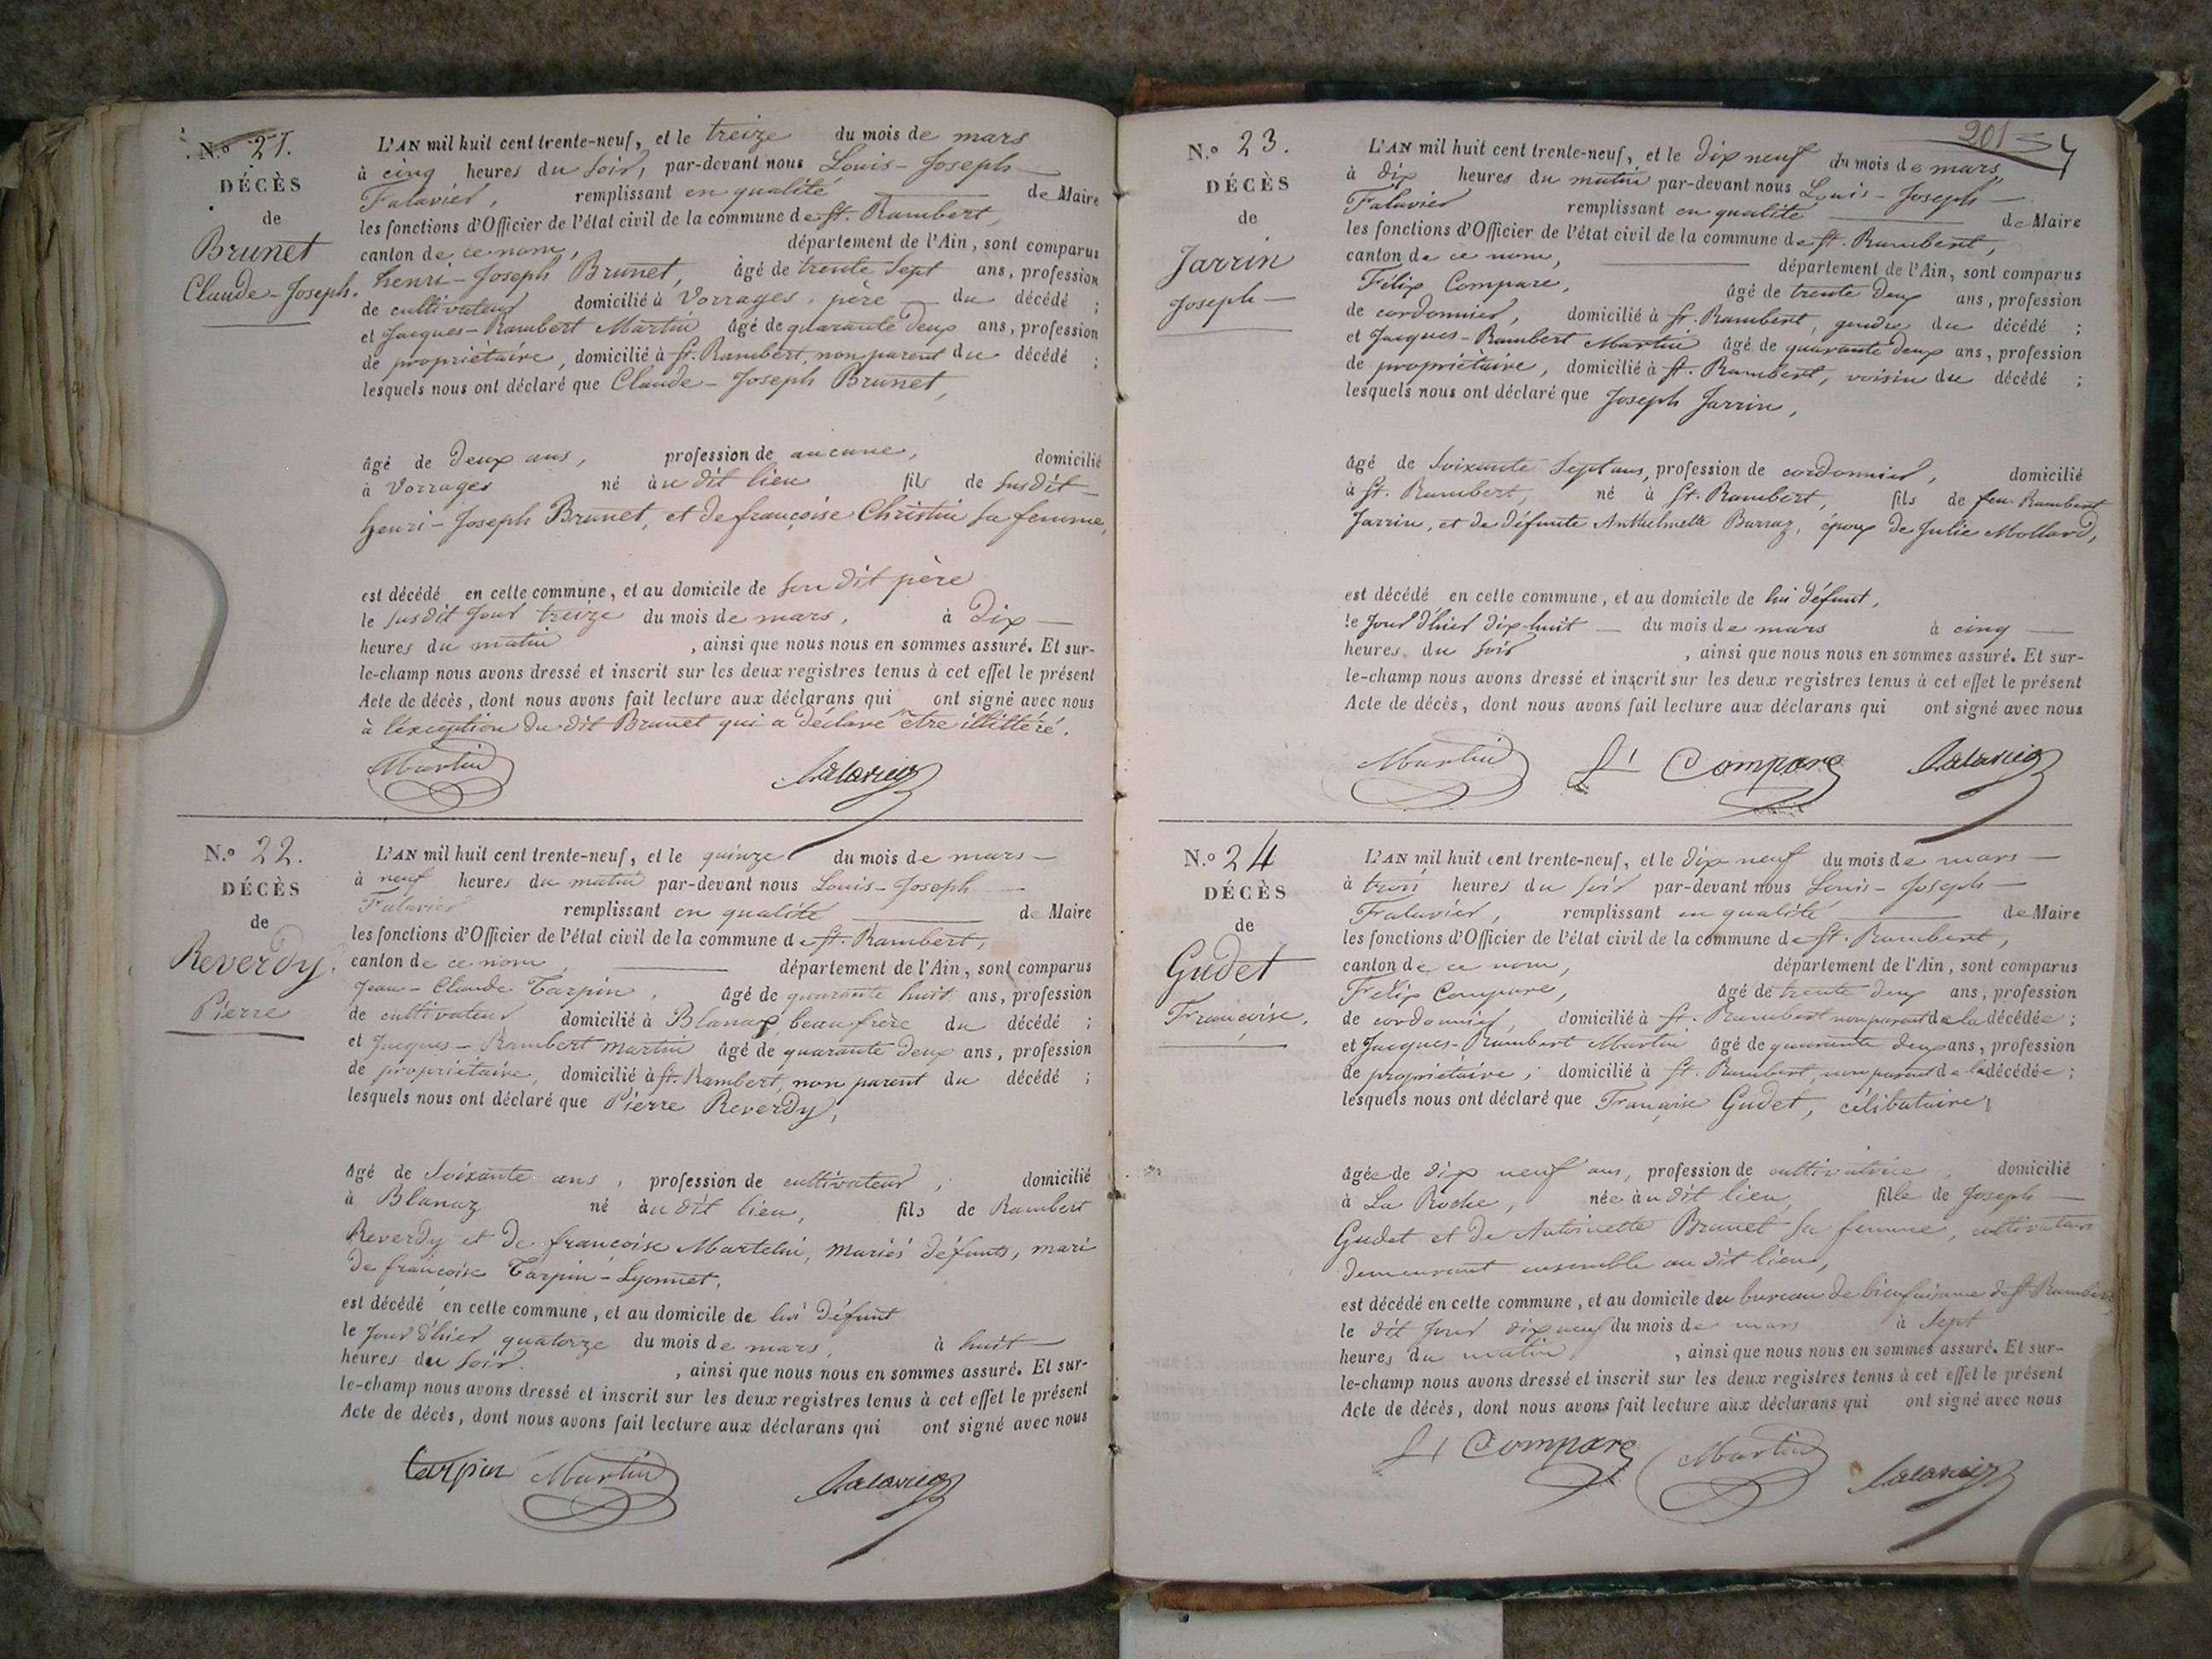 N.o 21.
DÉCÈS
de
Brunet
Claude-Joseph.
L'AN mil huit cent trente-neuf, et le treize du mois de mars
à cinq heures du soir, par-devant nous Louis-Joseph
Falavier, remplissant en qualité de Maire
les fonctions d'Officier de l'état civil de la commune de St. Rambert,
canton de ce nom, département de l'Ain, sont comparus
henri-Joseph Brunet, âgé de trente sept ans, profession
de cultivateur domicilié à Vorrages, père du décédé ;
et Jacques-Rambert Martin âgé de quarante deux ans, profession
de propriétaire, domicilié à St. Rambert, non parent du décédé ;
lesquels nous ont déclaré que Claude-Joseph Brunet,
âgé de deux ans, profession de aucune, domicilié
à Vorrages né au dit lieu fils de susdit
henri-Joseph Brunet, et de françoise Christin sa femme,
est décédé en cette commune, et au domicile de son dit père
le susdit jour treize du mois de mars, à dix
heures du matin, ainsi que nous nous en sommes assuré. Et sur-
le-champ nous avons dressé et inscrit sur les deux registres tenus à cet effet le présent
Acte de décès, dont nous avons fait lecture aux déclarans qui ont signé avec nous
à l'exception du dit Brunet qui a déclaré être illittéré.
Martin Falavier
N.o 22.
DÉCÈS
de
Reverdy.
Pierre
L'AN mil huit cent trente-neuf, et le quinze du mois de mars
à neuf heures du matin par-devant nous Louis-Joseph
Falavier remplissant en qualité de Maire
les fonctions d'Officier de l'état civil de la commune de St. Rambert,
canton de ce nom, département de l'Ain, sont comparus
Jean-Claude Tarpin, âgé de quarante huit ans, profession
de cultivateur domicilié à Blanaz, beau frère du décédé ;
et Jacques-Rambert Martin âgé de quarante deux ans, profession
de propriétaire, domicilié à St. Rambert, non parent du décédé ;
lesquels nous ont déclaré que Pierre Reverdy,
âgé de soixante ans, profession de cultivateur, domicilié
à Blanaz né au dit lieu, fils de Rambert
Reverdy et de françoise Martelin, mariés défunts, mari
de françoise Tarpin-Lyonnet,
est décédé en cette commune, et au domicile de lui défunt
le jour d'hier quatorze du mois de mars, à huit
heures du soir. , ainsi que nous nous en sommes assuré. Et sur-
le-champ nous avons dressé et inscrit sur les deux registres tenus à cet effet le présent
Acte de décès, dont nous avons fait lecture aux déclarans qui ont signé avec nous
tarpin Martin Falavier
201
N.o 23.
DÉCÈS
de
Jarrin
Joseph
L'AN mil huit cent trente-neuf, et le dix neuf du mois de mars,
à dix heures du matin par-devant nous Louis-Joseph
Falavier remplissant en qualité de Maire
les fonctions d'Officier de l'état civil de la commune de St. Rambert,
canton de ce nom, département de l'Ain, sont comparus
Félix Compare, âgé de trente deux ans, profession
de cordonnier, domicilié à St. Rambert, gendre du décédé ;
et Jacques-Rambert Martin âgé de quarante deux ans, profession
de propriétaire, domicilié à St. Rambert, voisin du décédé ;
lesquels nous ont déclaré que Joseph Jarrin,
âgé de soixante sept ans, profession de cordonnier, domicilié
à St. Rambert, né à St. Rambert, fils de feu Rambert
Jarrin, et de défunte Anthelmette Barraz, époux de Julie Mollard,
est décédé en cette commune, et au domicile de lui défunt,
le jour d'hier dix-huit du mois de mars à cinq
heures du soir, ainsi que nous nous en sommes assuré. Et sur-
le-champ nous avons dressé et inscrit sur les deux registres tenus à cet effet le présent
Acte de décès, dont nous avons fait lecture aux déclarans qui ont signé avec nous
Martin Compare Falavier
N.o 24
DÉCÈS
de
Gudet
Françoise.
L'AN mil huit cent trente-neuf, et le dix neuf du mois de mars
à trois heures du soir par-devant nous Louis-Joseph
Falavier, remplissant en qualité de Maire
les fonctions d'Officier de l'état civil de la commune de St. Rambert,
canton de ce nom, département de l'Ain, sont comparus
Félix Compare, âgé de trente deux ans, profession
de cordonnier, domicilié à St. Rambert non parent de la décédée ;
et Jacques-Rambert Martin âgé de quarante deux ans, profession
de propriétaire, domicilié à St. Rambert, non parent de la décédée ;
lesquels nous ont déclaré que Françoise Gudet, célibataire,
âgée de dix neuf ans, profession de cultivatrice, domicilié
à La Roche, née au dit lieu, fille de Joseph
Gudet et de Antoinette Brunet sa femme, cultivateurs
demeurant ensemble au dit lieu,
est décédé en cette commune, et au domicile du bureau de bienfaisance de St. Rambert,
le dit jour dix neuf du mois de mars à sept
heures du matin, ainsi que nous nous en sommes assuré. Et sur-
le-champ nous avons dressé et inscrit sur les deux registres tenus à cet effet le présent
Acte de décès, dont nous avons fait lecture aux déclarans qui ont signé avec nous
Compare Martin Falavier